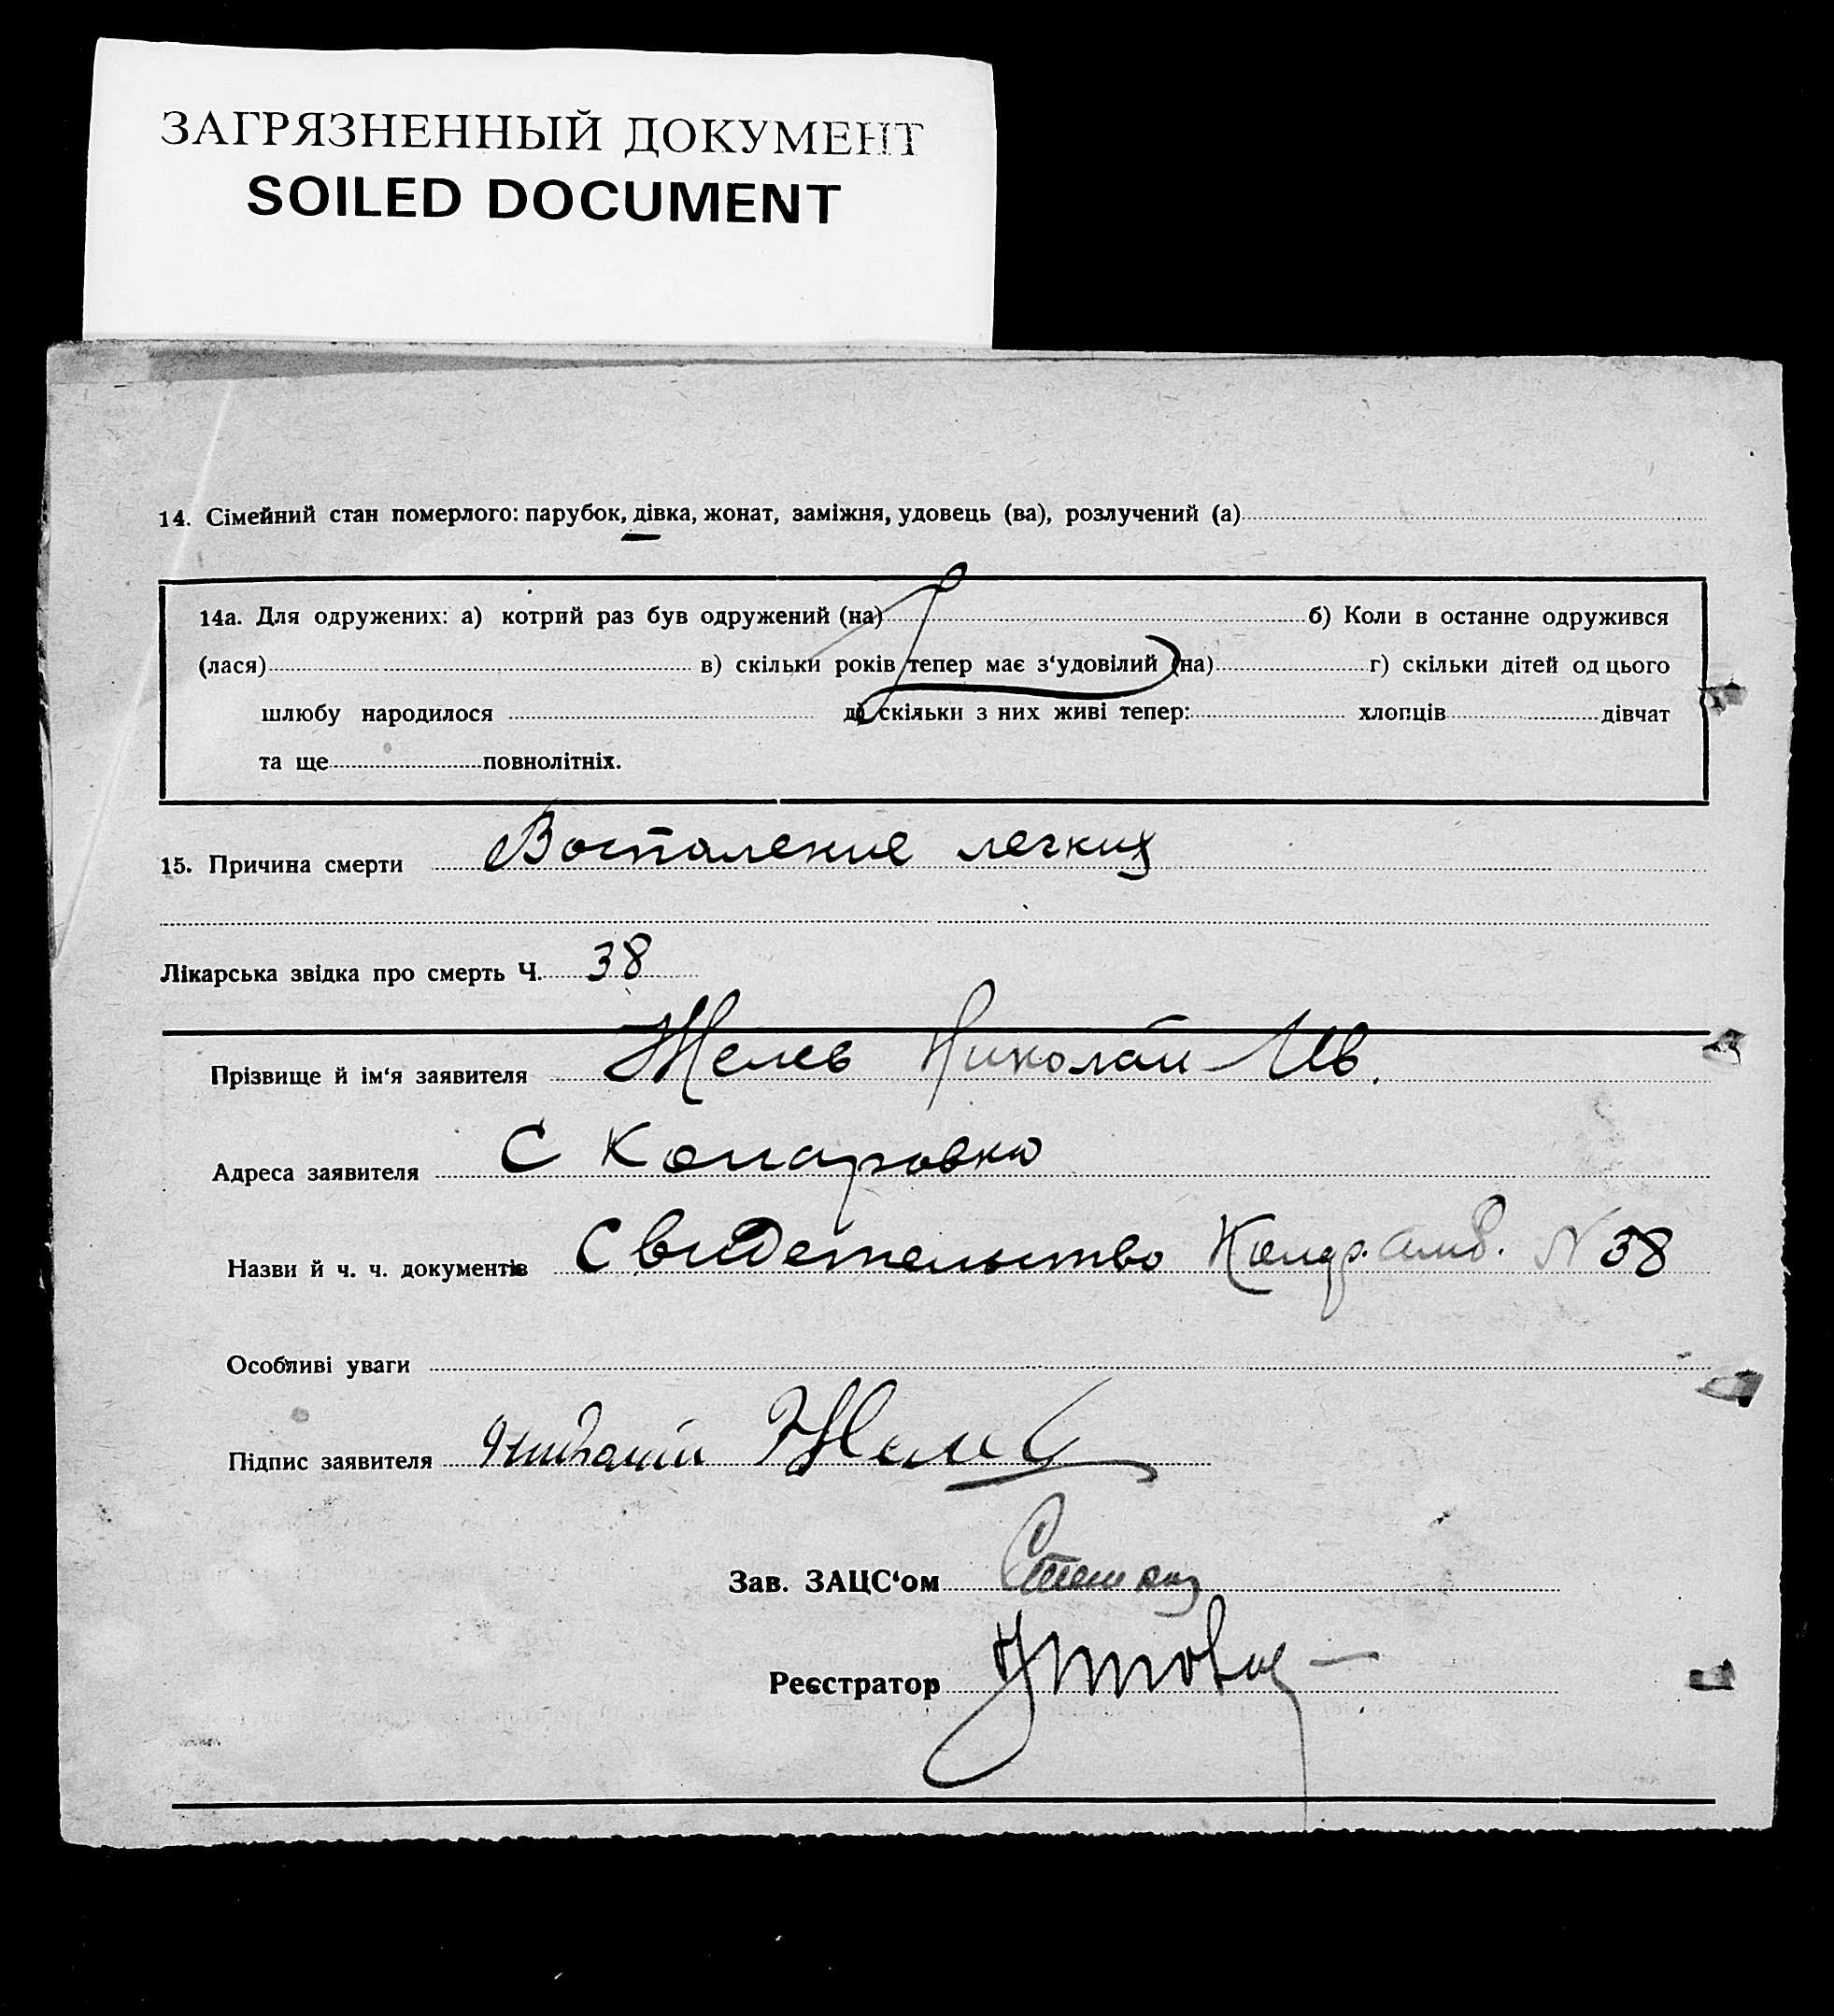 ЗАГРЯЗНЕННЫЙ ДОКУМЕНТ
SOILED DOCUMENT
14. Сімейний стан померлого: парубок, дівка, жонат, заміжня, удовець (ва), розлучений (а)
14а. Для одружених: а) котрий раз був одружений (на) б) Коли в останне одружився
(лася) в) скільки років тепер має з‘удовілий (на) г) скільки дітей од цього
шлюбу народилося д) скільки з них живі тепер: хлопців дівчат
та ще повнолітніх.
15. Причина смерти Воспаление легких
Лікарська звідка про смерть Ч. 38
Прізвище й ім‘я заявителя Желев Николай Ив.
Адреса заявителя С Комаровка
Назви й ч. ч. документів Свидетельство амб. N 38
Особливі уваги
Підпис заявителя Желев
Зав. ЗАЦС‘ом
Реєстратор